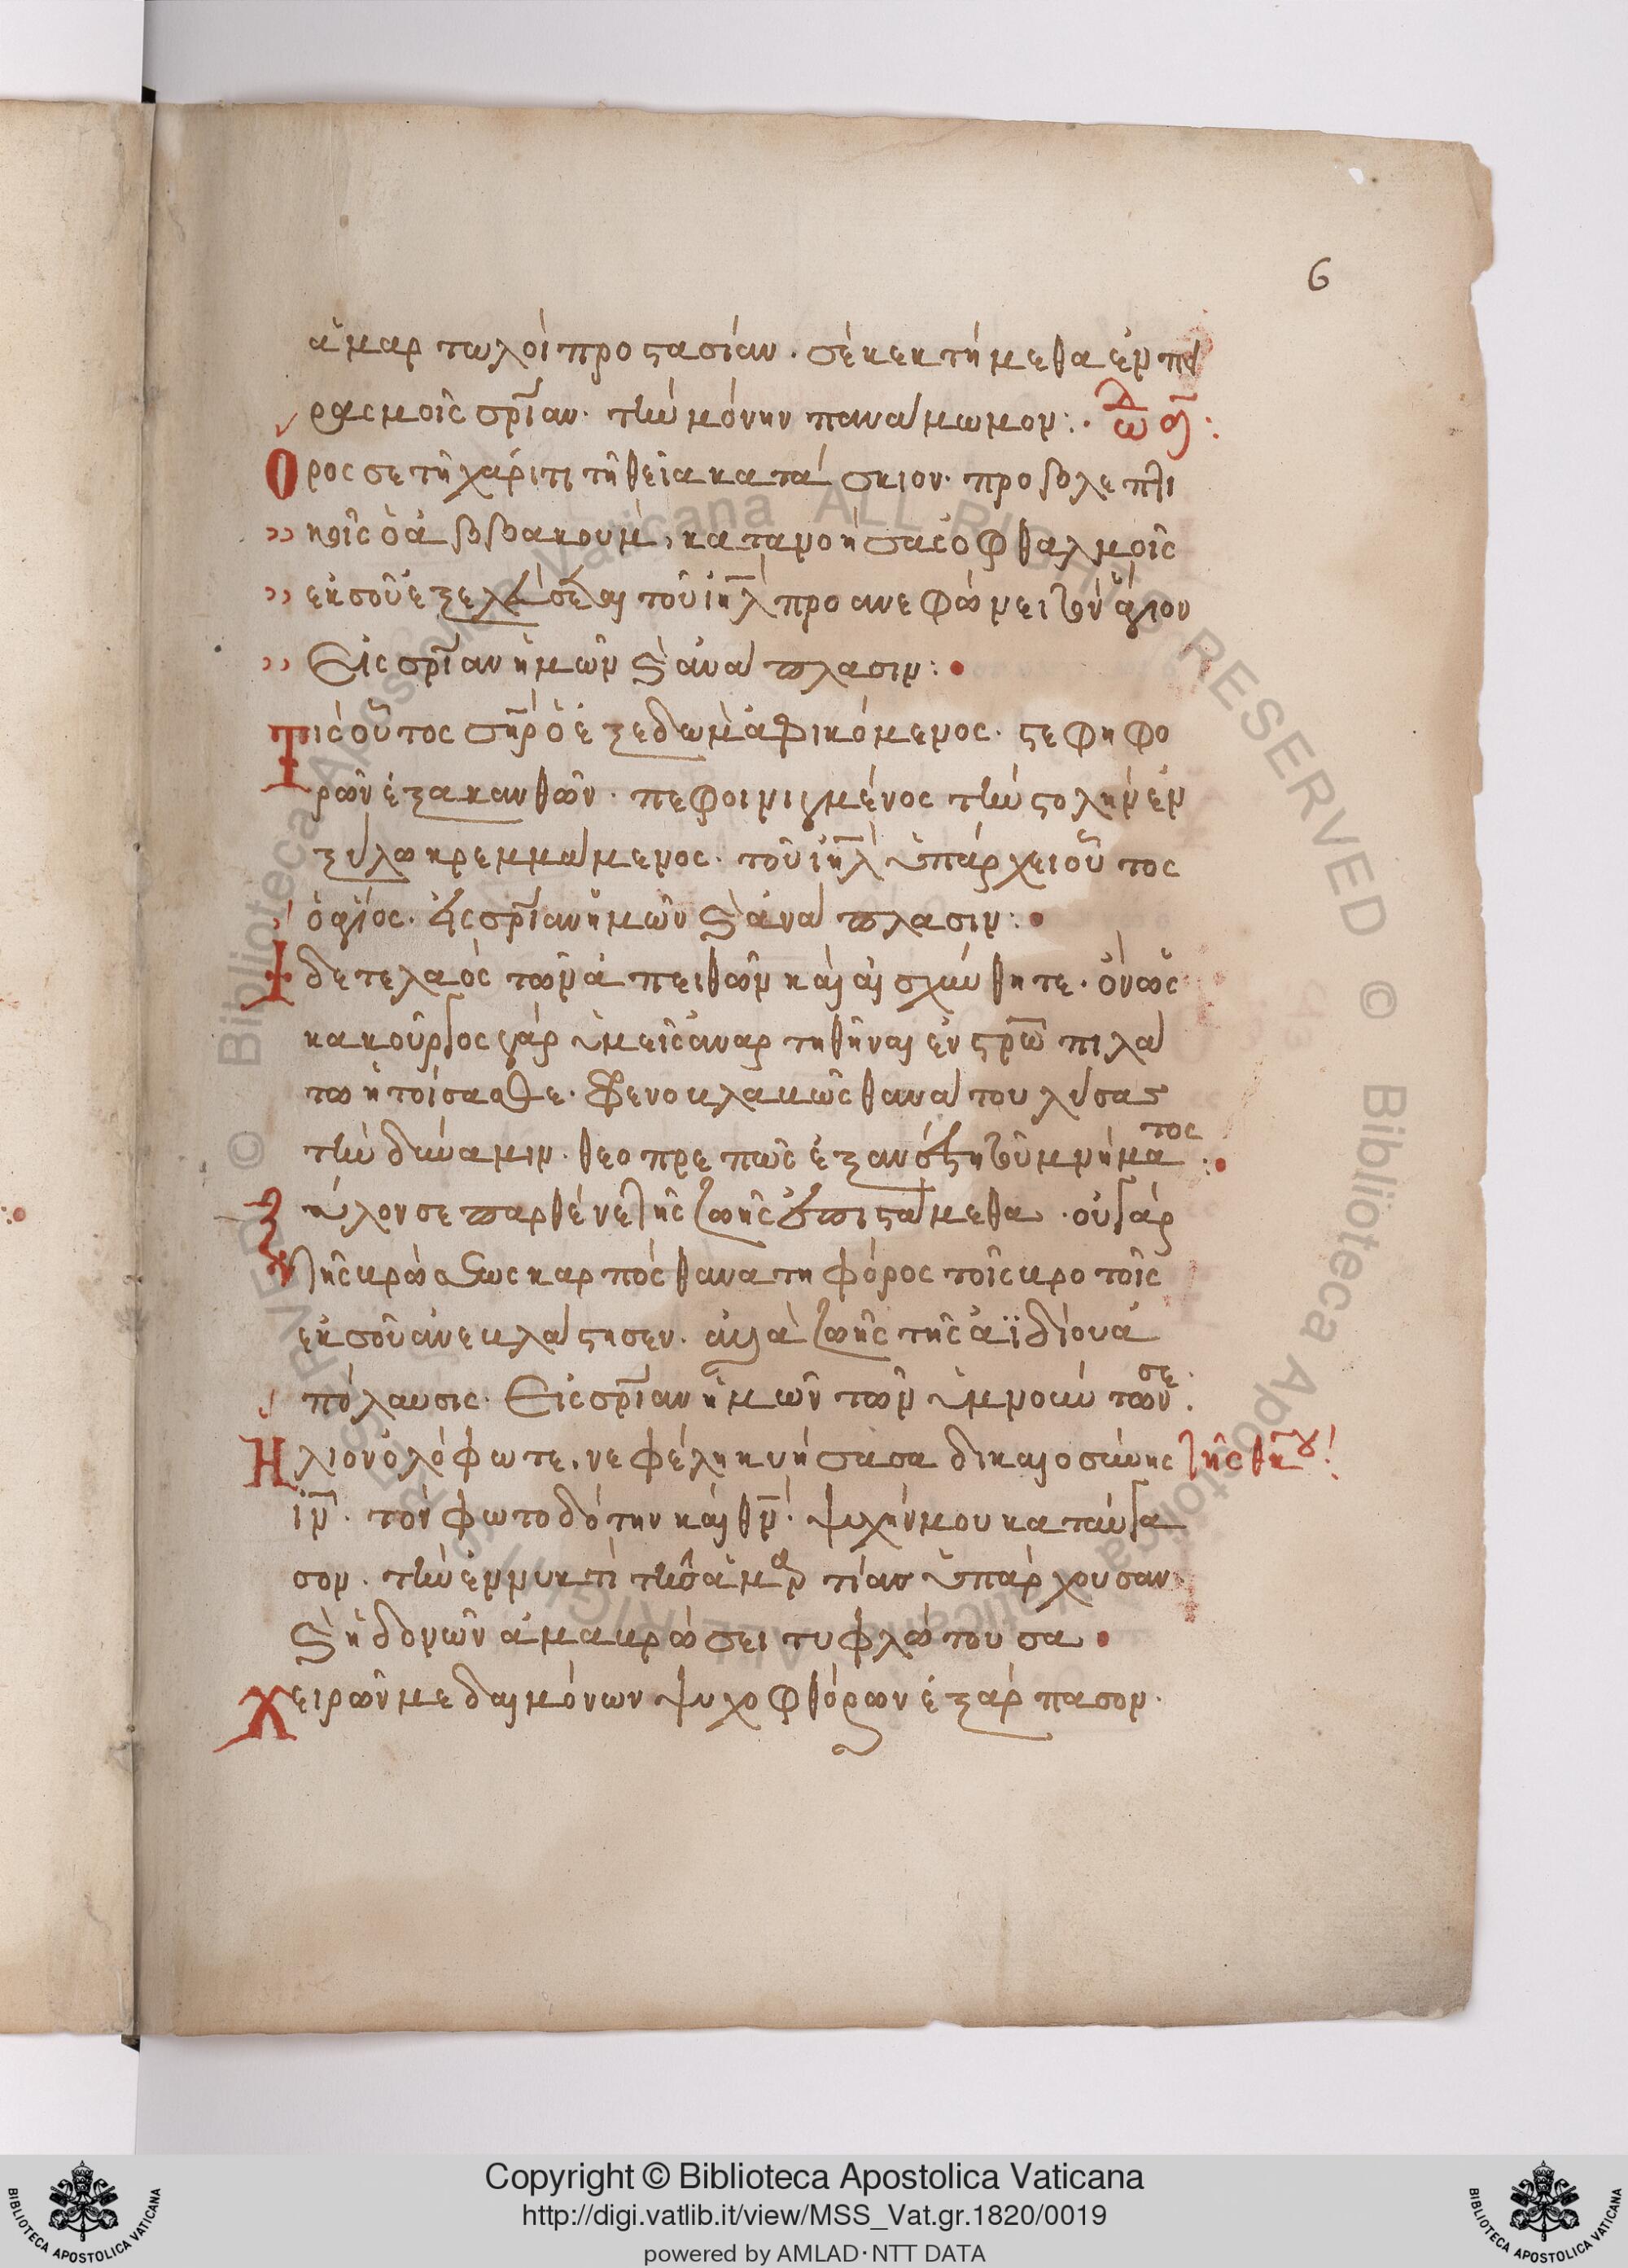 6
ἁμαρτωλοὶ προστασίαν· σὲ κεκτήμεθα ἐν πει
ρασμοῖς σρίαν· τὴν μόνην παναμωμον:· ᾠδ
Ορος σε τῆ χάριτι τῆ θεία κατασκιον· προβλεπτι
κοῖς ὁ ἀββακουμ, κατανοήσας ὀφθαλμοῖς
ἐκ σοῦ ἐξελεύσεσθαι τοῦ ιηλ προανεφώνει τὸν ἅγιον
Εἰς σρίαν ἡμῶν καὶ ἀνάπλασιν:
Τίς οὗτος σηρ ὁ ἐξ εδωμ ἀφικόμενος· στεφηφο
ρῶν ἐξ ακανθῶν· πεφοινιγμένος τὴν στολὴν ἐν
ξύλω κρεμμάμενος· τοῦ ιηλ ὑπάρχει οὗτος
ὁ ἅγιος· εἰς σρίαν ἡμῶν καὶ ἀνάπλασιν:
Ιδετε λαὸς τῶν ἀπειθῶν καὶ αἰσχύνθητε· ὃν ὡς
κακοῦργος γὰρ ὑμεῖς ἀναρτηθῆναι ἐν στρω πιλά
τω ἠτοίσασθε·
τὴν δύναμιν· θεοπρεπῶς ἐξανέστη τοῦ μνήματος:
Ξύλον σε παρθένε τῆς ζωῆς ἐπιστάμεθα· οὐ γὰρ
τῆς βρώσεως καρπὸς θανατηφόρος τοῖς βροτοῖς
ἐκ σοῦ ἀνεβλάστησεν. ἀλλὰ ζωῆς τῆς ἀϊδίου ἀ
πόλαυσις· Εἰς σρίαν ἡμῶν τῶν ὑμνούντων σε:
Ηλιον ὁλόφωτε, νεφέλη κυήσασα δικαιοσύνης τῆς θκου
ιν· τὸν φωτοδότην καὶ θν· ψυχήν μου καταύγα
σον· τὴν ἐν νυκτὶ τῆς ἁμαρτίας ὑπάρχουσαν
καὶ ἡδονῶν ἀμαυρώσει τυφλώτουσα
Χειρῶν με δαιμόνων ψυχοφθόρων ἐξάρπασον·
Copyright © Biblioteca Apostolica Vaticana
http://digi.vatlib.it/view/MSS_Vat.gr.1820/0019
powered by AMLAD·NTT DATA